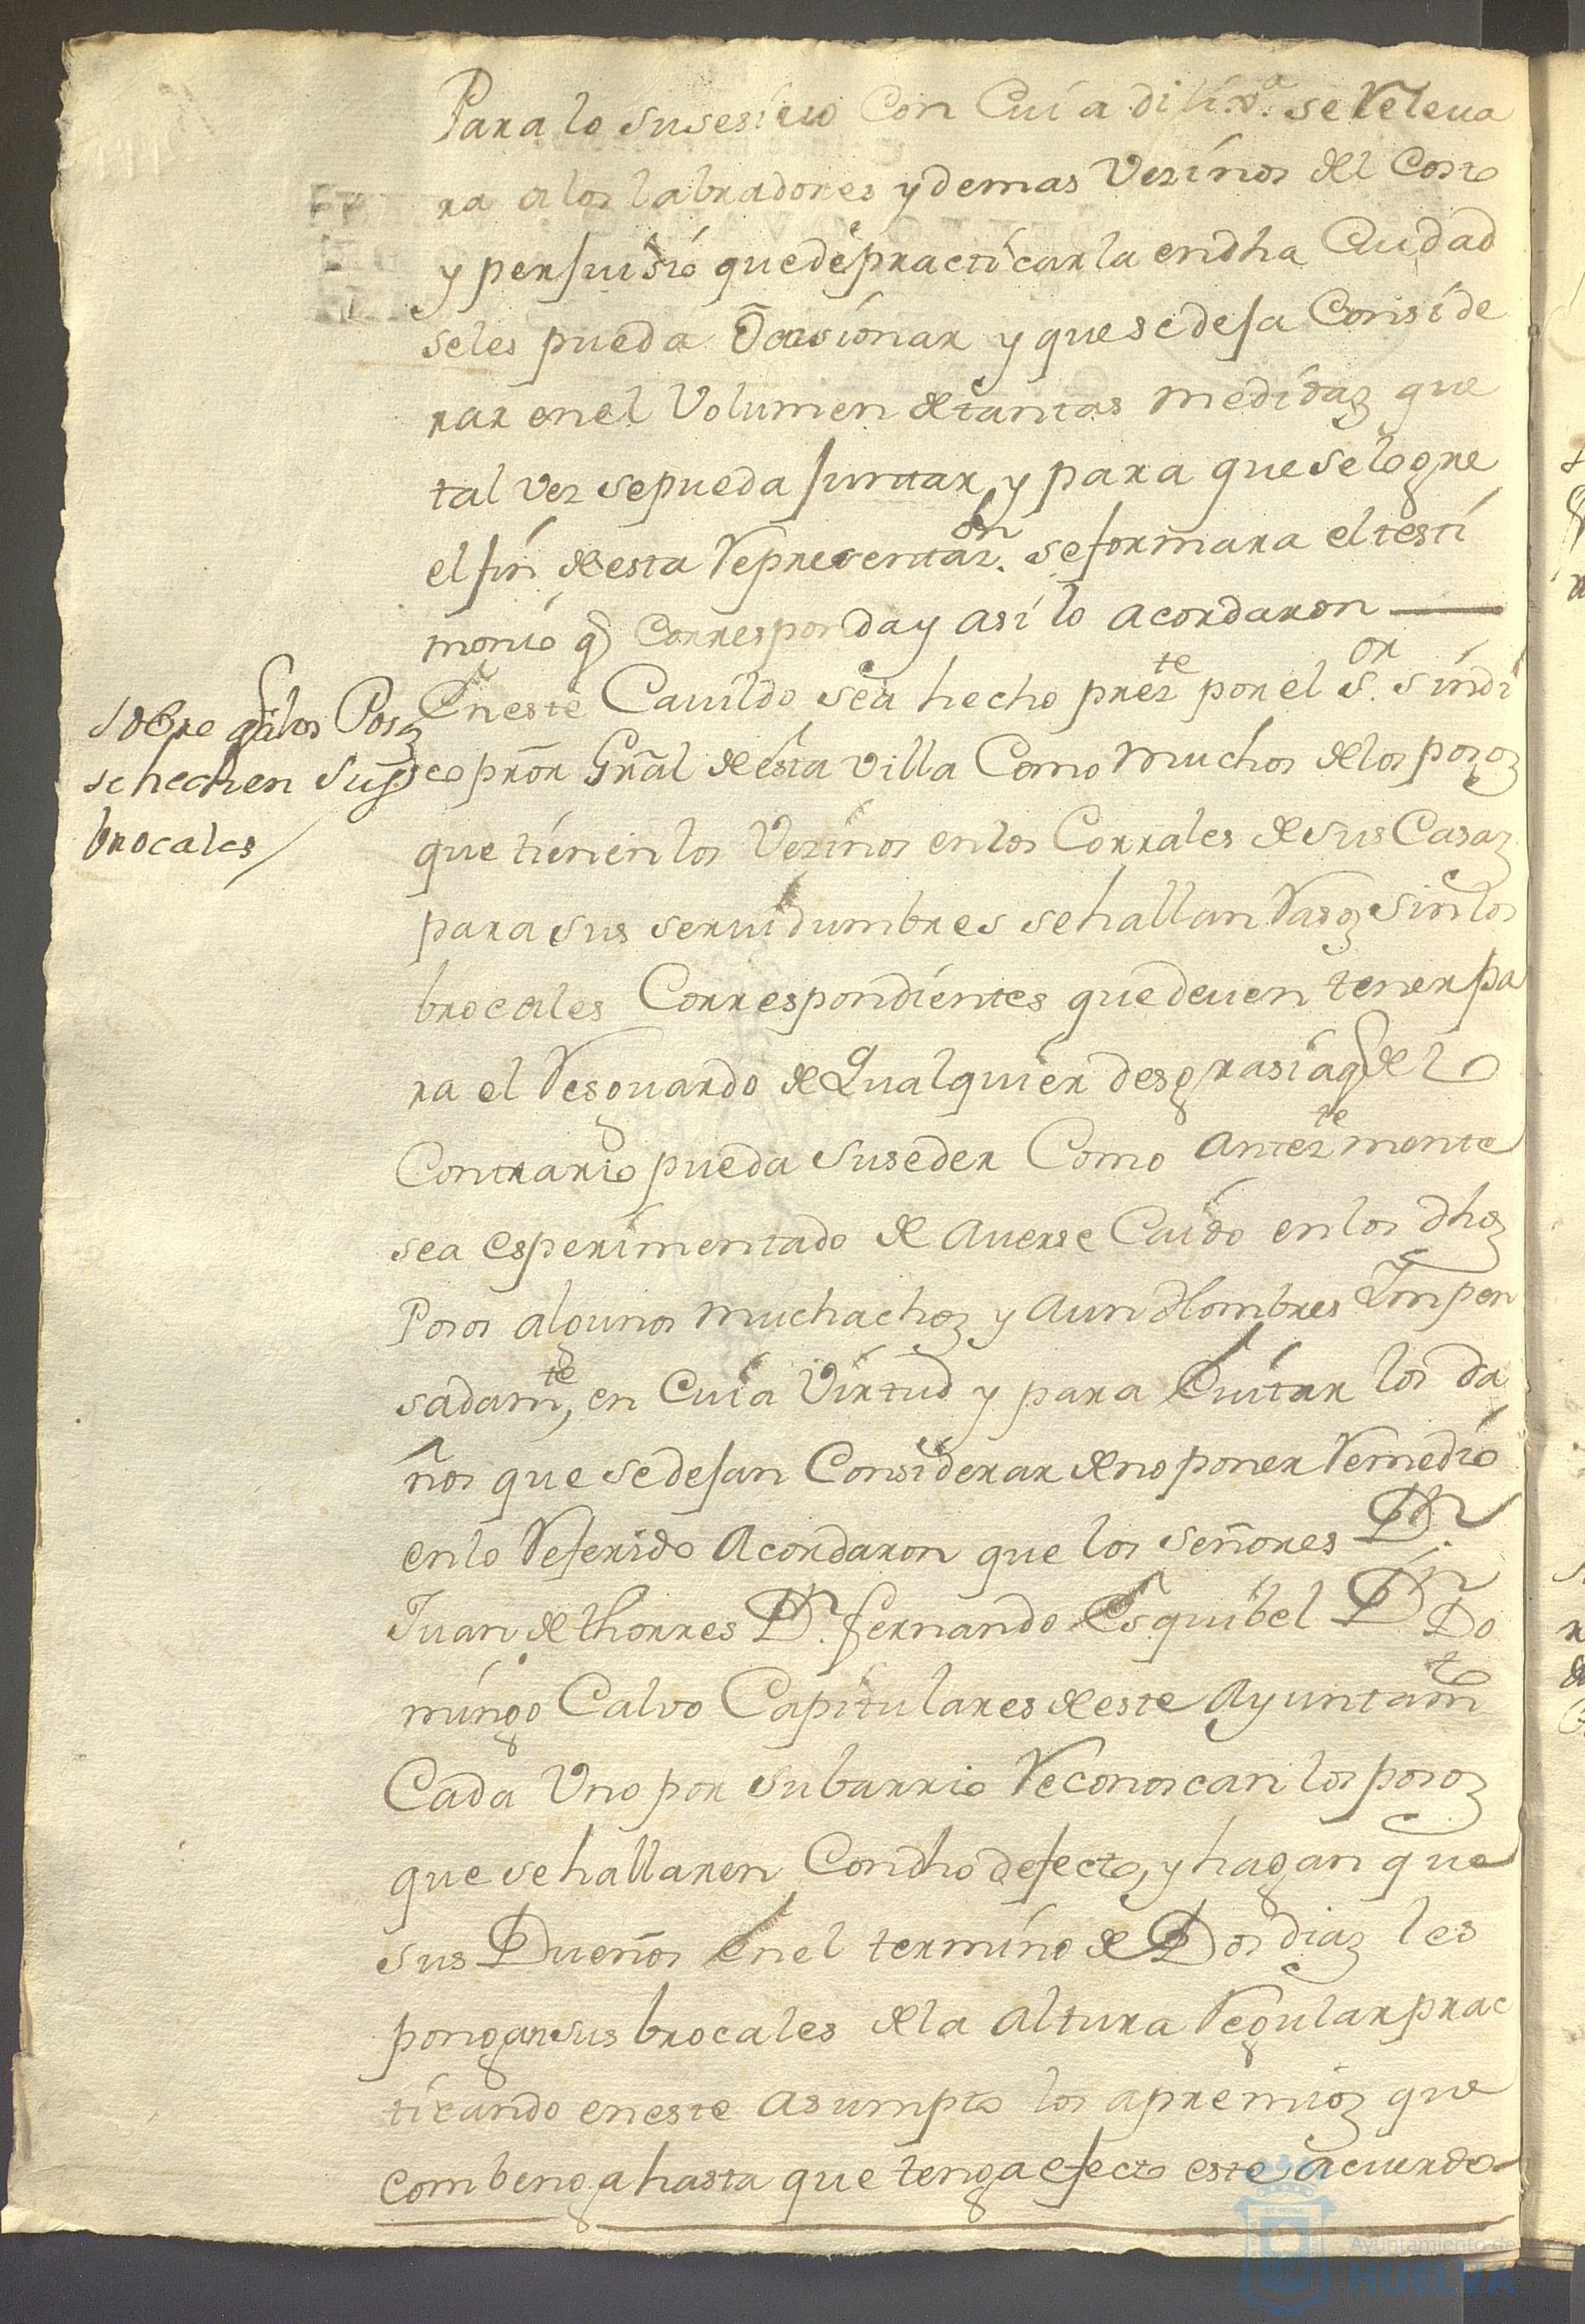 Para lo susesivo Con Cuia dilix.ª se Releua
ra a los labradores y demas Vezinos del Costo
y persuisio que de practicarla en dha Ciudad
se les pueda Ocasionar y que se desa Conside
rar en el Volumen de tantas medidas que
tal vez se pueda suntar y para que se logre
el fin de esta Representaz.on se formara el testi
monio q Corresponda y asi lo acordaron
En este Cauildo se a hecho prezte por el S.or Sindi
co pror Gral de esta villa Como muchos de los pozos
que tienen los Vezinos en los Corrales de sus Casas
para sus seruidumbres se hallan Rasos sin los
brocales Correspondientes que deuen tener pa
ra el Resguardo de Qualquier desgrasia q de lo
Contrario pueda suseder Como anteztemente
se a esperimentado de auerse Caido en los dhos
Posos algunos muchachos y aun Hombres Ynpen
sadamte, en Cuia Virtud y para Euitar los da
ños que se desan Considerar de no poner Remedio
en lo Referido Acordaron que los señores Dn.
Juan de thorres Dn. fernando Esquibel Dn Do
mingo Calvo Capitulares de este Ayuntamto
Cada Uno por su barrio Reconoscan los posos
que se hallaren Con dho defecto, y hagan que
sus Dueños en el termino de Dos dias les
pongan sus brocales de la altura Regular prac
ticando en este asumpto los apremios que
combenga hasta que tenga efecto este acuerdo
sobre q a los Posos
se hechen sus
brocales
Ayuntamiento de
HUELVA